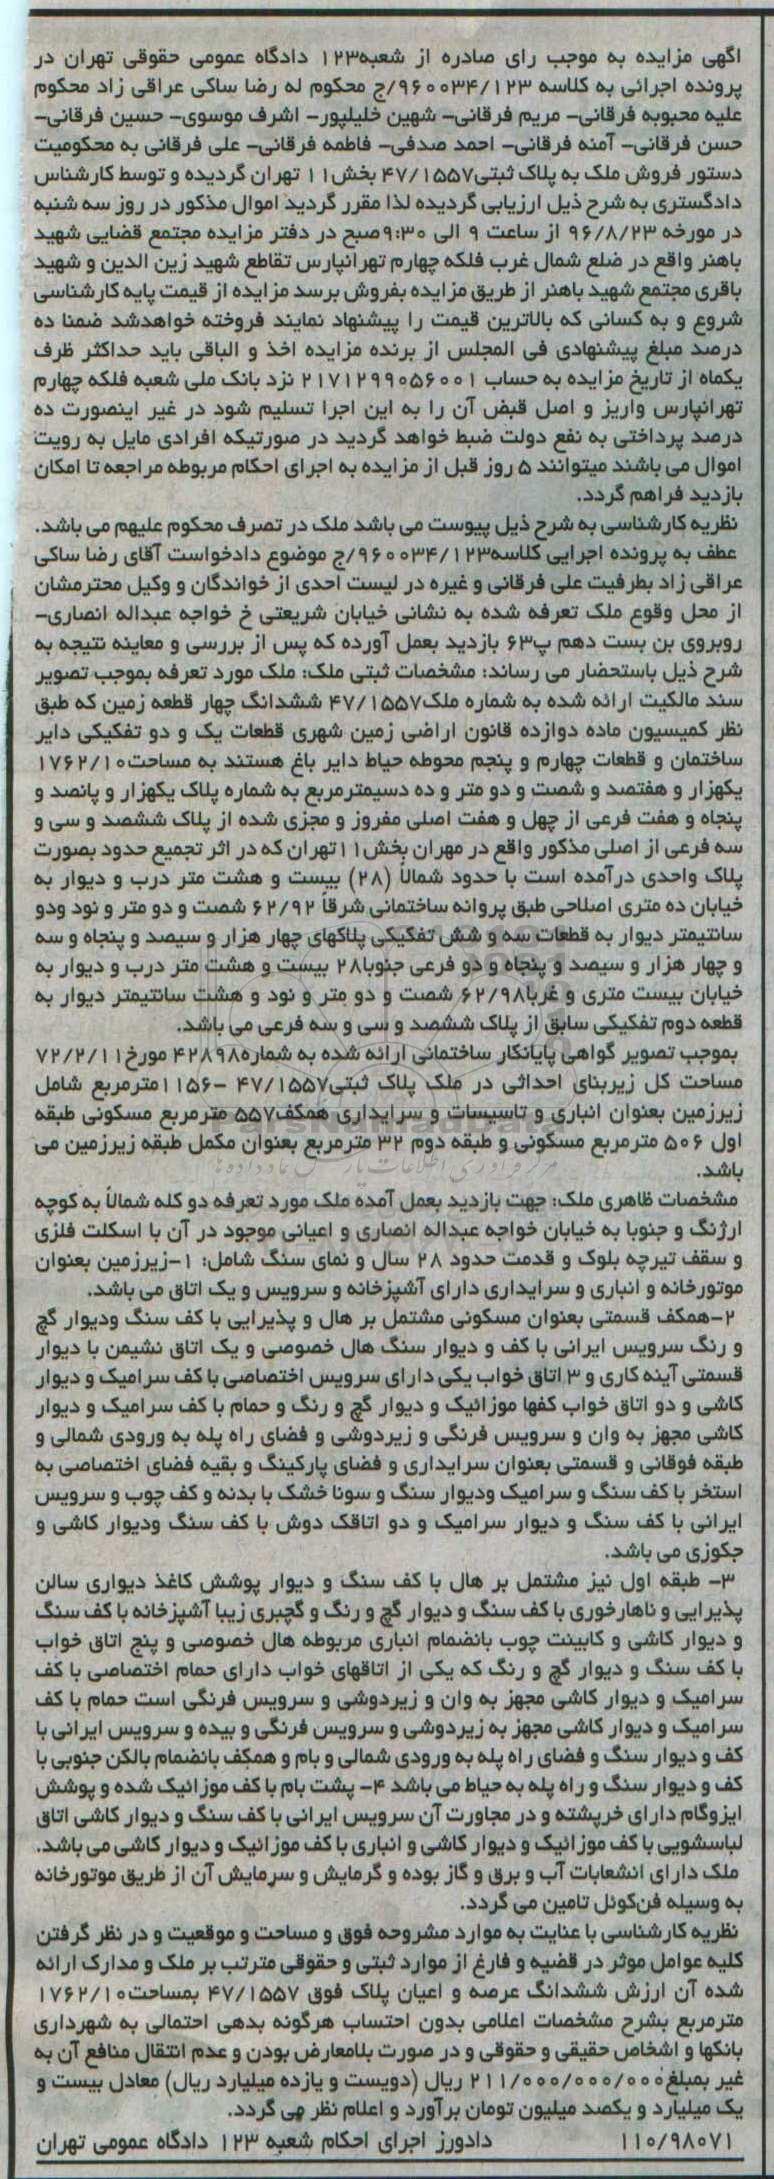 آگهی مزایده به موجب رای صادره از شعبه۱۲۳ دادگاه عمومی حقوقی تهران در
پرونده اجرائی به کلاسه ۹۶۰۰۳۴/۱۲۳/ج محکوم له رضا ساکی عراقی زاد محکوم
علیه محبوبه فرقانی- مریم فرقانی- شهین خلیلپور- اشرف موسوی- حسین فرقانی-
حسن فرقانی- آمنه فرقانی- احمد صدفی- فاطمه فرقانی- علی فرقانی به محکومیت
دستور فروش ملک به پلاک ثبتی۴۷/۱۵۵۷ بخش۱۱ تهران گردیده و توسط کارشناس
دادگستری به شرح ذیل ارزیابی گردیده لذا مقرر گردید اموال مذکور در روز سه شنبه
در مورخه ۹۶/۸/۲۳ از ساعت ۹ الی ۹:۳۰صبح در دفتر مزایده مجتمع قضایی شهید
باهنر واقع در ضلع شمال غرب فلکه چهارم تهرانپارس تقاطع شهید زین الدین و شهید
باقری مجتمع شهید باهنر از طریق مزایده بفروش برسد مزایده از قیمت پایه کارشناسی
شروع و به کسانی که بالاترین قیمت را پیشنهاد نمایند فروخته خواهدشد ضمنا ده
درصد مبلغ پیشنهادی فی المجلس از برنده مزایده اخذ و الباقی باید حداکثر ظرف
یکماه از تاریخ مزایده به حساب ۲۱۷۱۲۹۹۰۵۶۰۰۱ نزد بانک ملی شعبه فلکه چهارم
تهرانپارس واریز و اصل قبض آن را به این اجرا تسلیم شود در غیر اینصورت ده
درصد پرداختی به نفع دولت ضبط خواهد گردید در صورتیکه افرادی مایل به رویت
اموال می باشند میتوانند ۵ روز قبل از مزایده به اجرای احکام مربوطه مراجعه تا امکان
بازدید فراهم گردد.
نظریه کارشناسی به شرح ذیل پیوست می باشد ملک در تصرف محکوم علیهم می باشد.
عطف به پرونده اجرایی کلاسه۹۶۰۰۳۴/۱۲۳/ج موضوع دادخواست آقای رضا ساکی
عراقی زاد بطرفیت علی فرقانی و غیره در لیست احدی از خواندگان و وکیل محترمشان
از محل وقوع ملک تعرفه شده به نشانی خیابان شریعتی خ خواجه عبداله انصاری-
روبروی بن بست دهم پ۶۳ بازدید بعمل آورده که پس از بررسی و معاینه نتیجه به
شرح ذیل باستحضار می رساند: مشخصات ثبتی ملک: ملک مورد تعرفه بموجب تصویر
سند مالکیت ارائه شده به شماره ملک۴۷/۱۵۵۷ ششدانگ چهار قطعه زمین که طبق
نظر کمیسیون ماده دوازده قانون اراضی زمین شهری قطعات یک و دو تفکیکی دایر
ساختمان و قطعات چهارم و پنجم محوطه حیاط دایر باغ هستند به مساحت۱۷۶۲/۱۰
یکهزار و هفتصد و شصت و دو متر و ده دسیمترمربع به شماره پلاک یکهزار و پانصد و
پنجاه و هفت فرعی از چهل و هفت اصلی مفروز و مجزی شده از پلاک ششصد و سی و
سه فرعی از اصلی مذکور واقع در مهران بخش۱۱تهران که در اثر تجمیع حدود بصورت
پلاک واحدی درآمده است با حدود شمالاً (۲۸) بیست و هشت متر درب و دیوار به
خیابان ده متری اصلاحی طبق پروانه ساختمانی شرقاً ۶۲/۹۲ شصت و دو متر و نود ودو
سانتیمتر دیوار به قطعات سه و شش تفکیکی پلاکهای چهار هزار و سیصد و پنجاه و سه
و چهار هزار و سیصد و پنجاه و دو فرعی جنوبا۲۸ بیست و هشت متر درب و دیوار به
خیابان بیست متری و غربا۶۲/۹۸ شصت و دو متر و نود و هشت سانتیمتر دیوار به
قطعه دوم تفکیکی سابق از پلاک ششصد و سی و سه فرعی می باشد.
بموجب تصویر گواهی پایانکار ساختمانی ارائه شده به شماره۴۲۸۹۸ مورخ۷۲/۲/۱۱
مساحت کل زیربنای احداثی در ملک پلاک ثبتی۴۷/۱۵۵۷ -۱۱۵۶مترمربع شامل
زیرزمین بعنوان انباری و تاسیسات و سرایداری همکف۵۵۷ مترمربع مسکونی طبقه
اول ۵۰۶ مترمربع مسکونی و طبقه دوم ۳۲ مترمربع بعنوان مکمل طبقه زیرزمین می
باشد.
مشخصات ظاهری ملک: جهت بازدید بعمل آمده ملک مورد تعرفه دو کله شمالاً به کوچه
ارژنگ و جنوبا به خیابان خواجه عبداله انصاری و اعیانی موجود در آن با اسکلت فلزی
و سقف تیرچه بلوک و قدمت حدود ۲۸ سال و نمای سنگ شامل: ۱-زیرزمین بعنوان
موتورخانه و انباری و سرایداری دارای آشپزخانه و سرویس و یک اتاق می باشد.
۲-همکف قسمتی بعنوان مسکونی مشتمل بر هال و پذیرایی با کف سنگ ودیوار گچ
و رنگ سرویس ایرانی با کف و دیوار سنگ هال خصوصی و یک اتاق نشیمن با دیوار
قسمتی آینه کاری و ۳ اتاق خواب یکی دارای سرویس اختصاصی با کف سرامیک و دیوار
کاشی و دو اتاق خواب کفها موزائیک و دیوار گچ و رنگ و حمام با کف سرامیک و دیوار
کاشی مجهز به وان و سرویس فرنگی و زیردوشی و فضای راه پله به ورودی شمالی و
طبقه فوقانی و قسمتی بعنوان سرایداری و فضای پارکینگ و بقیه فضای اختصاصی به
استخر با کف سنگ و سرامیک ودیوار سنگ و سونا خشک با بدنه و کف چوب و سرویس
ایرانی با کف سنگ و دیوار سرامیک و دو اتاقک دوش با کف سنگ ودیوار کاشی و
جکوزی می باشد.
۳- طبقه اول نیز مشتمل بر هال با کف سنگ و دیوار پوشش کاغذ دیواری سالن
پذیرایی و ناهارخوری با کف سنگ و دیوار گچ و رنگ و گچبری زیبا آشپزخانه با کف سنگ
و دیوار کاشی و کابینت چوب بانضمام انباری مربوطه هال خصوصی و پنج اتاق خواب
با کف سنگ و دیوار گچ و رنگ که یکی از اتاقهای خواب دارای حمام اختصاصی با کف
سرامیک و دیوار کاشی مجهز به وان و زیردوشی و سرویس فرنگی است حمام با کف
سرامیک و دیوار کاشی مجهز به زیردوشی و سرویس فرنگی و بیده و سرویس ایرانی با
کف و دیوار سنگ و فضای راه پله به ورودی شمالی و بام و همکف بانضمام بالکن جنوبی با
کف و دیوار سنگ و راه پله به حیاط می باشد ۴- پشت بام با کف موزائیک شده و پوشش
ایزوگام دارای خرپشته و در مجاورت آن سرویس ایرانی با کف سنگ و دیوار کاشی اتاق
لباسشویی با کف موزائیک و دیوار کاشی و انباری با کف موزائیک و دیوار کاشی می باشد.
ملک دارای انشعابات آب و برق و گاز بوده و گرمایش و سرمایش آن از طریق موتورخانه
به وسیله فن‌کوئل تامین می گردد.
نظریه کارشناسی با عنایت به موارد مشروحه فوق و مساحت و موقعیت و در نظر گرفتن
کلیه عوامل موثر در قضیه و فارغ از موارد ثبتی و حقوقی مترتب بر ملک و مدارک ارائه
شده آن ارزش ششدانگ عرصه و اعیان پلاک فوق ۴۷/۱۵۵۷ بمساحت۱۷۶۲/۱۰
مترمربع بشرح مشخصات اعلامی بدون احتساب هرگونه بدهی احتمالی به شهرداری
بانکها و اشخاص حقیقی و حقوقی و در صورت بلامعارض بودن و عدم انتقال منافع آن به
غیر بمبلغ۲۱۱/۰۰۰/۰۰۰/۰۰۰ ریال (دویست و یازده میلیارد ریال) معادل بیست و
یک میلیارد و یکصد میلیون تومان برآورد و اعلام نظر می گردد.
۱۱۰/۹۸۰۷۱ دادورز اجرای احکام شعبه ۱۲۳ دادگاه عمومی تهران
ParsNamadData